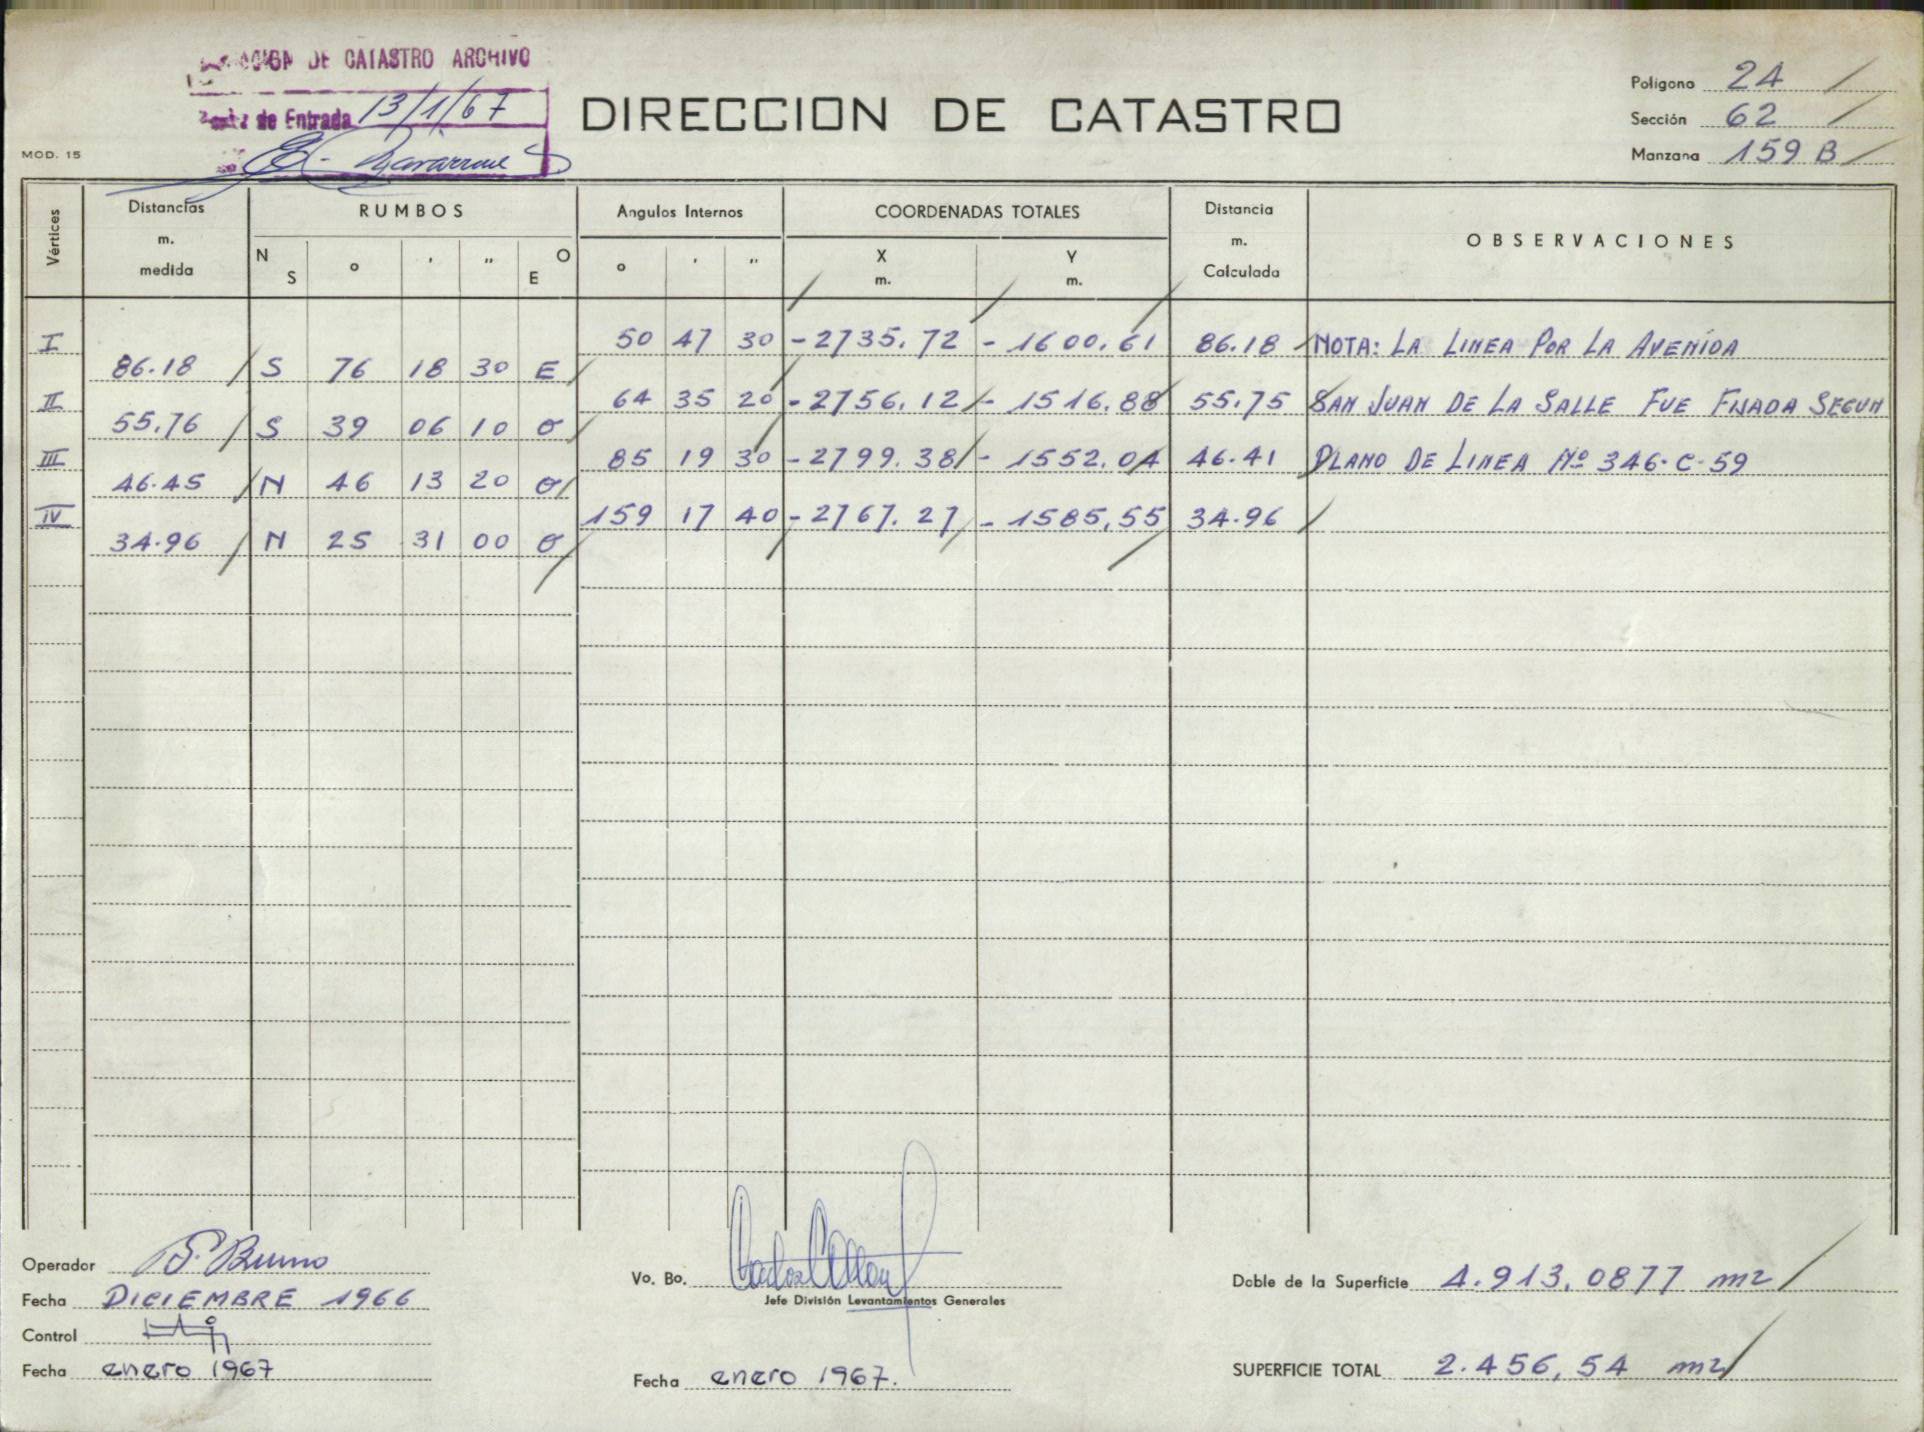 DE CATASTRO ARCHIVO
de Entrada 13/1/67
MOD. 15
DIRECCION DE CATASTRO
Poligono 24
Sección 62
Manzana 159 B
Vértices
Distancias m. medida
RUMBOS
N S ° ' " O E
Angulos Internos
° ' "
COORDENADAS TOTALES
X m. Y m.
Distancia m. Calculada
OBSERVACIONES
I 50 47 30 -2735.72 -1600.61 86.18 NOTA: LA LINEA POR LA AVENIDA
86.18 S 76 18 30 E
II 64 35 20 -2756.12 -1516.88 55.75 SAN JUAN DE LA SALLE FUE FIJADA SEGUN
55.76 S 39 06 10 O
III 85 19 30 -2799.38 -1552.04 46.41 PLANO DE LINEA Nº 346-C-59
46.45 N 46 13 20 O
IV 159 17 40 -2767.27 -1585,55 34.96
34.96 N 25 31 00 O
Operador S. Bruno
Fecha DICIEMBRE 1966
Control
Fecha enero 1967
Vo. Bo.
Jefe División Levantamientos Generales
Fecha enero 1967.
Doble de la Superficie 4.913,0877 m2
SUPERFICIE TOTAL 2.456,54 m2